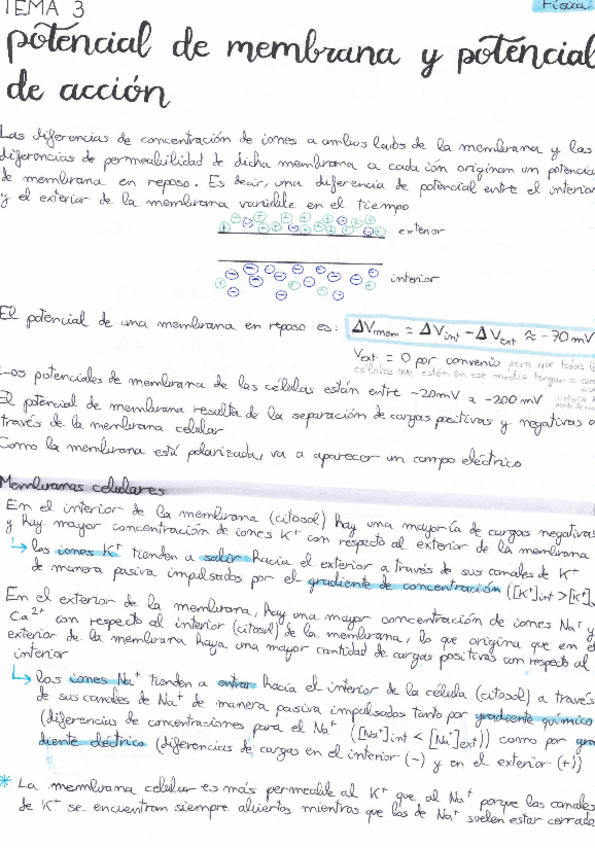 TEMA 3
Física
potencial de membrana y potencial
de acción
Las diferencias de concentración de iones a ambos lados de la membrana y las
diferencias de permeabilidad de dicha membrana a cada ión originan un potencial
de membrana en reposo. Es decir, una diferencia de potencial entre el interior
y el exterior de la membrana variable en el tiempo
exterior
interior
El potencial de una membrana en reposo es: ΔVmem = ΔVint - ΔVext ≈ -70 mV
Vext = 0 por convenio para que todas l
células que estén en ese medio tengan
Los potenciales de membrana de las células están entre -20mV a -200 mV
El potencial de membrana resulta de la separación de cargas positivas y negativas a
través de la membrana celular
Como la membrana está polarizada, va a aparecer un campo eléctrico
Membranas celulares
En el interior de la membrana (citosol) hay una mayoría de cargas negativas
y hay mayor concentración de iones K+ con respecto al exterior de la membrana
↳ los iones K+ tienden a salir hacia el exterior a través de sus canales de K+
de manera pasiva impulsados por el gradiente de concentración ([K+]int > [K+]
En el exterior de la membrana, hay una mayor concentración de iones Na+ y
Ca2+ con respecto al interior (citosol) de la membrana, lo que origina que en el
exterior de la membrana haya una mayor cantidad de cargas positivas con respecto al
interior
↳ los iones Na+ tienden a entrar hacia el interior de la célula (citosol) a través
de sus canales de Na+ de manera pasiva impulsados tanto por gradiente químico
(diferencias de concentraciones para el Na+ ([Na+]int < [Na+]ext)) como por gra
diente eléctrico (diferencias de cargas en el interior (-) y en el exterior (+))
* La membrana celular es más permeable al K+ que al Na+ porque los canales
de K+ se encuentran siempre abiertos mientras que los de Na+ suelen estar cerrado